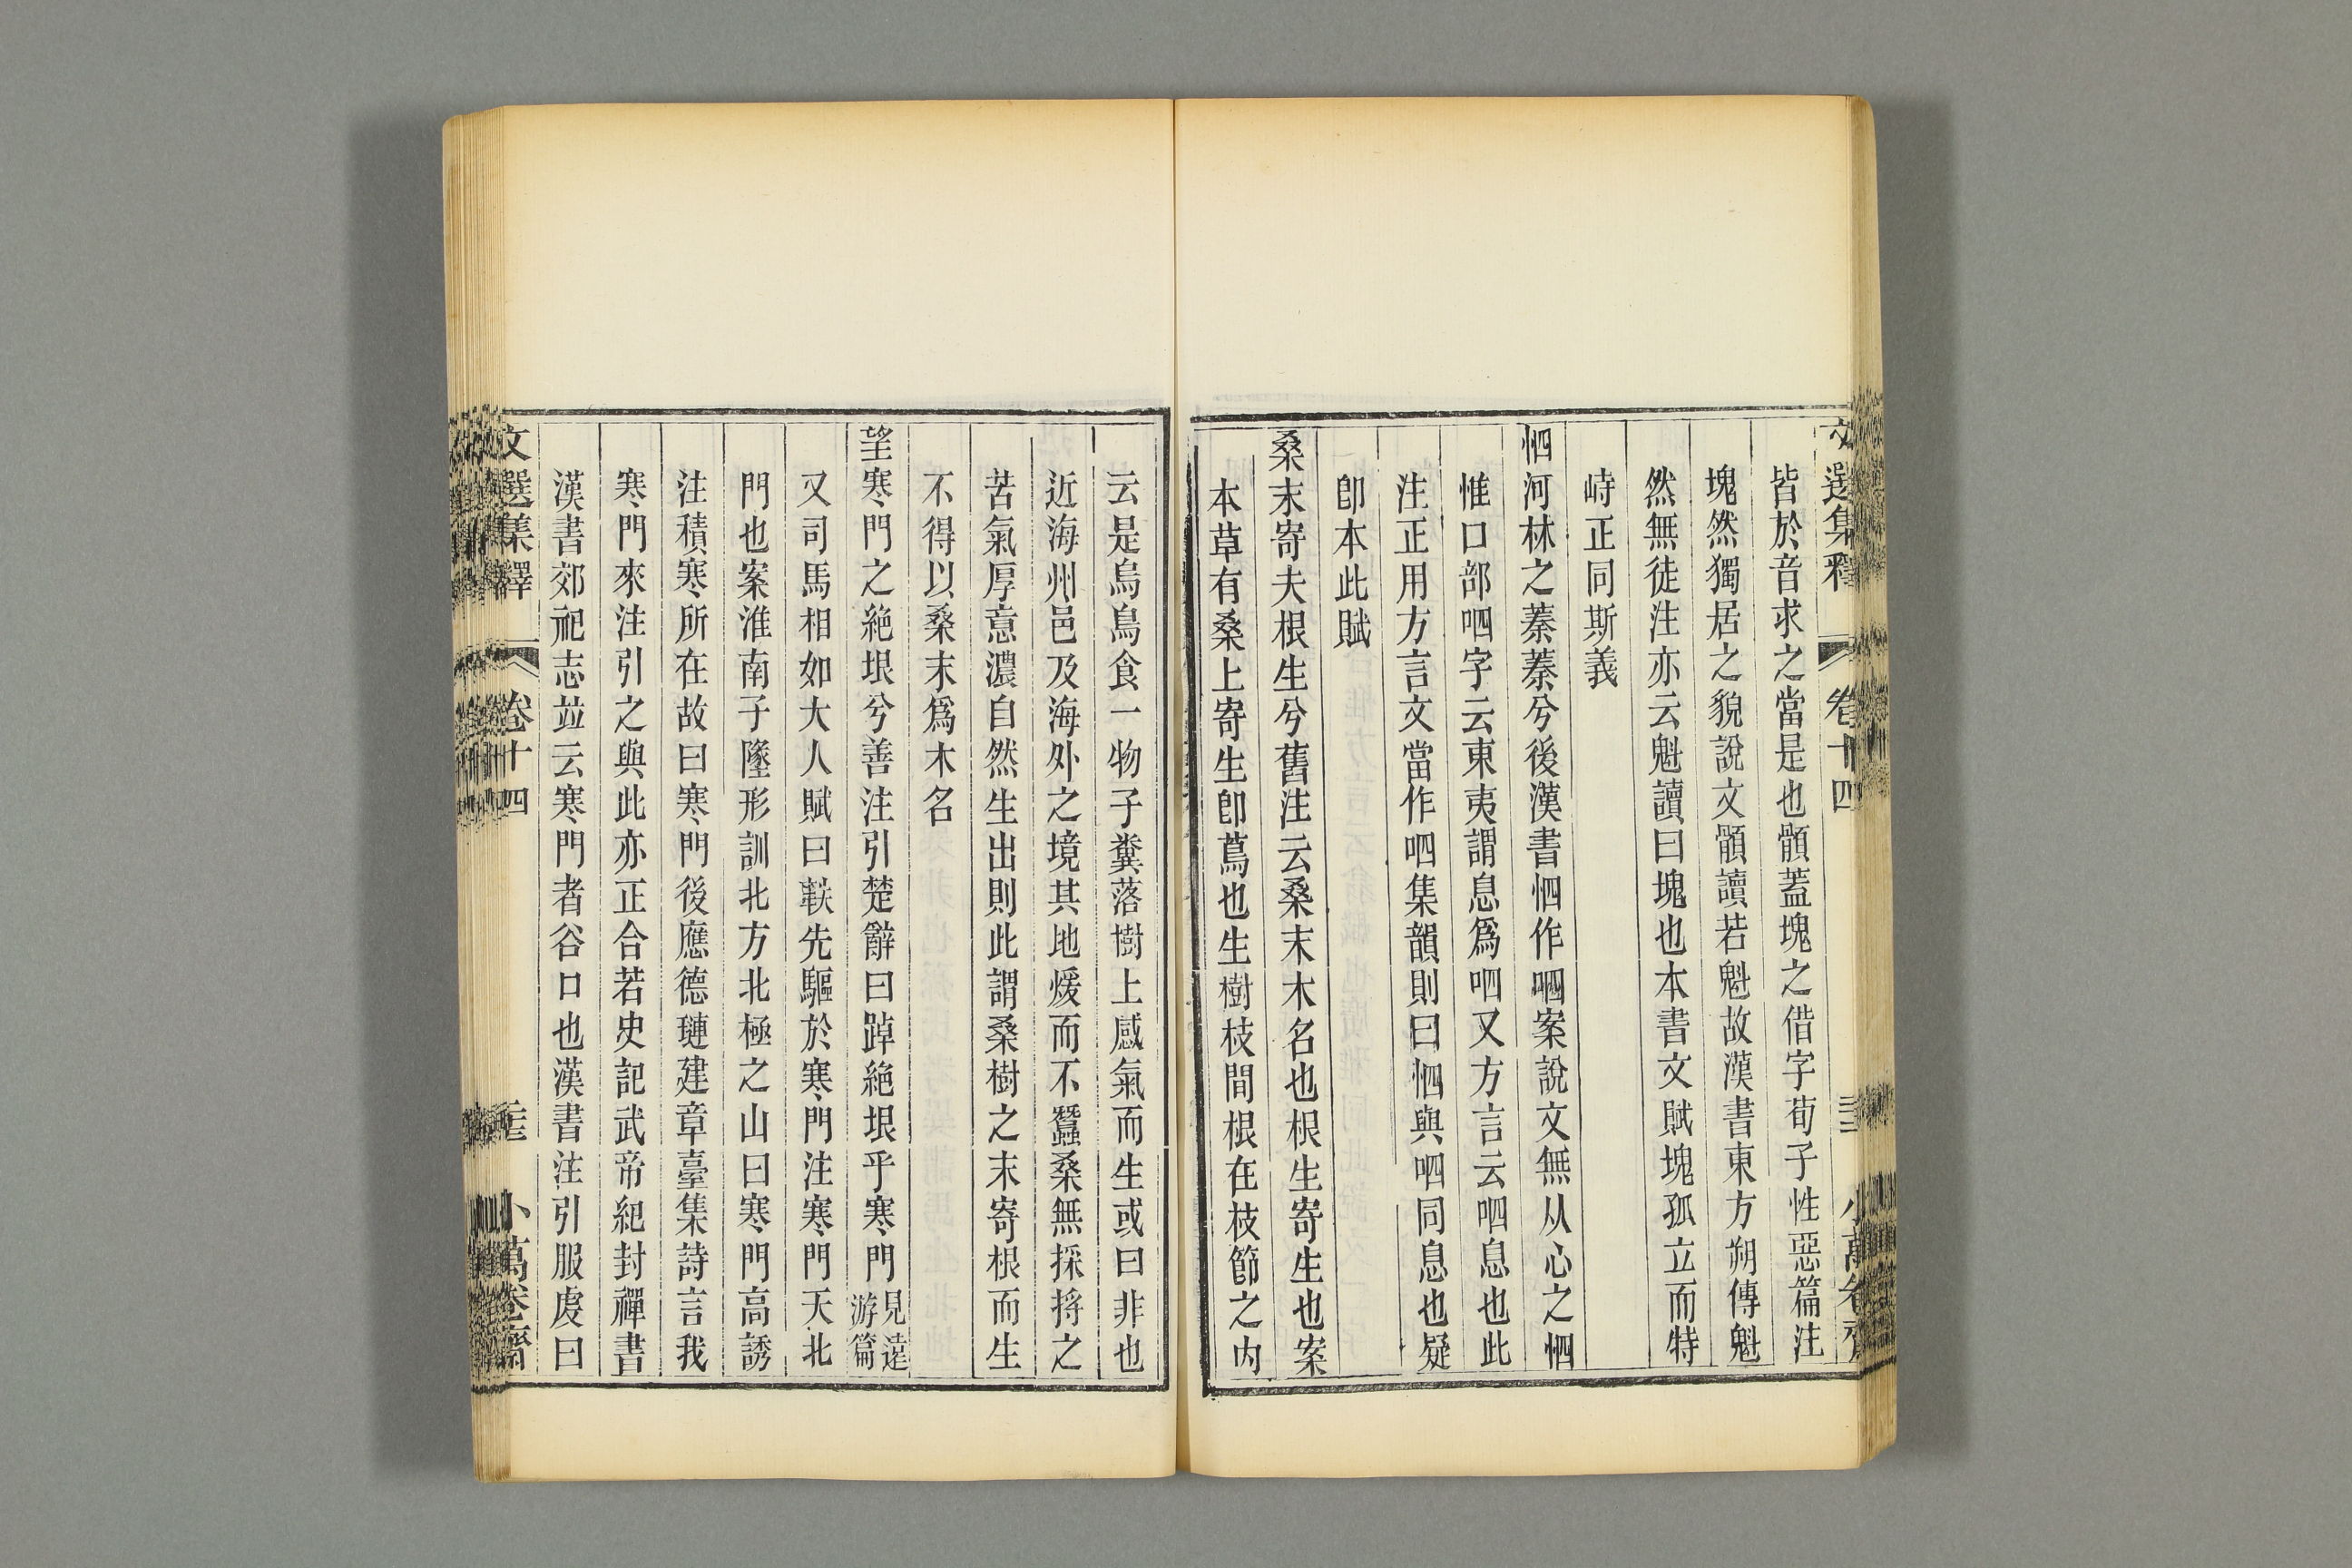 文選集釋 卷十四 小萬卷齋
皆於音求之當是也顝蓋塊之借字荀子性惡篇注
塊然獨居之貌說文顝讀若魁故漢書東方朔傳魁
然無徒注亦云魁讀曰塊也本書文賦塊孤立而特
峙正同斯義
怬河林之蓁蓁兮後漢書怬作呬案說文無从心之怬
惟口部呬字云東夷謂息爲呬又方言云呬息也此
注正用方言文當作呬集韻則曰怬與呬同息也疑
卽本此賦
桑末寄夫根生兮舊注云桑末木名也根生寄生也案
本草有桑上寄生卽蔦也生樹枝間根在枝節之內
云是烏鳥食一物子糞落樹上感氣而生或曰非也
近海州邑及海外之境其地煖而不蠶桑無採捋之
苦氣厚意濃自然生出則此謂桑樹之末寄根而生
不得以桑末爲木名
望寒門之絶垠兮善注引楚辭曰踔絶垠乎寒門見遠游篇
又司馬相如大人賦曰軼先驅於寒門注寒門天北
門也案淮南子墬形訓北方北極之山曰寒門高誘
注積寒所在故曰寒門後應德璉建章臺集詩言我
寒門來注引之與此亦正合若史記武帝紀封禪書
漢書郊祀志竝云寒門者谷口也漢書注引服虔曰
文選集釋 卷十四 小萬卷齋